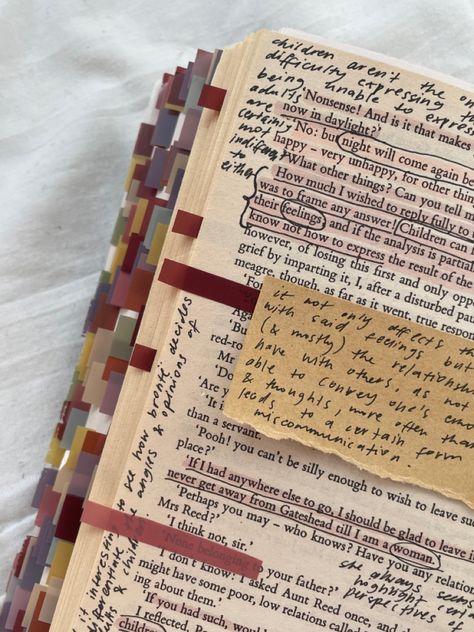 children aren't the
difficulty expressing
being unable to express
adults
are
certainly
not
indifferent
to
either
'Nonsense! And is it that makes
now in daylight?'
'No: but night will come again be
happy – very unhappy, for other thin
'What other things? Can you tell
How much I wished to reply fully to
was to frame any answer! Children can
their feelings; and if the analysis is partia
know not how to express the result of th
however, of losing this first and only opp
grief by imparting it, I, after a disturbed pau
meagre, though, as far as it went, true respon
'For
'But
red-ro
Mr
'Are yo
than a servant.
it not only affects
with said feelings but
(& mostly) the relationsh
have with others, as not
able to convey one's
& thoughts, more often tha
leads to a certain form
miscommunication.
'Pooh! you can't be silly enough to wish to leave s
place?'
'If I had anywhere else to go, I should be glad to leave
never get away from Gateshead till I am a woman.
'Perhaps you may – who knows? Have you any relation
Mrs Reed?'
'I think not, sir.'
'None belonging to your father?'
'I don't know: I asked Aunt Reed once, and
might have some poor, low relations called
ing about them.'
'If you had such, would
I reflected.
children
she always seem
highlight
perspectives of
interesting to see how brontë decides
differentiate the angles & opinions of
& children